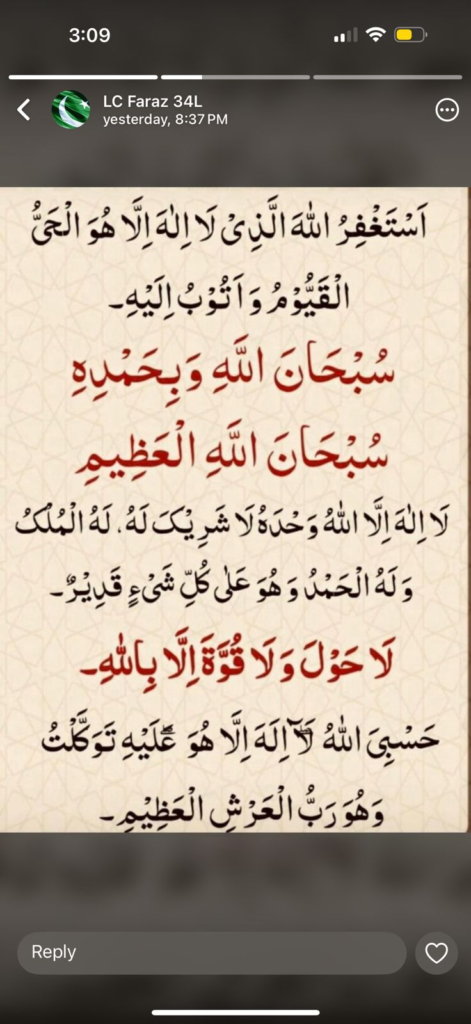 3:09
LC Faraz 34L
yesterday, 8:37 PM
اَسْتَغْفِرُ اللّٰهَ الَّذِىْ لَا اِلٰهَ اِلَّا هُوَ الْحَىُّ
الْقَيُّوْمُ وَاَتُوْبُ اِلَيْهِ۔
سُبْحَانَ اللَّهِ وَبِحَمْدِهِ
سُبْحَانَ اللَّهِ الْعَظِيمِ
لَا اِلٰهَ اِلَّا اللّٰهُ وَحْدَهُ لَا شَرِيْكَ لَهُ، لَهُ الْمُلْكُ
وَلَهُ الْحَمْدُ وَهُوَ عَلٰى كُلِّ شَىْءٍ قَدِيْرٌ۔
لَا حَوْلَ وَلَا قُوَّةَ اِلَّا بِاللّٰهِ۔
حَسْبِىَ اللّٰهُ لَآ اِلَهَ اِلَّا هُوَ ۖ عَلَيْهِ تَوَكَّلْتُ
وَهُوَ رَبُّ الْعَرْشِ الْعَظِيْمِ۔
Reply